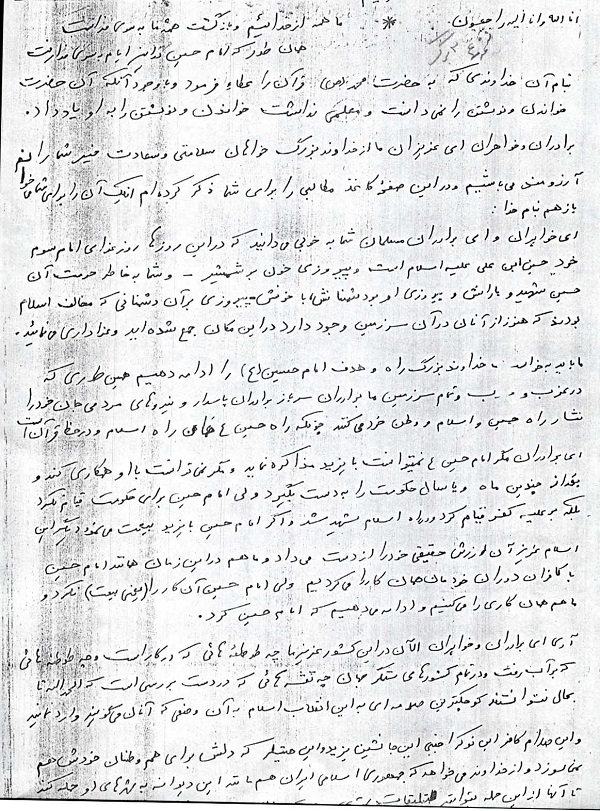 انا لله و انا الیه راجعون. * ما همه از خدائیم و بازگشت همه ما به سوی خداست
همان طور که امام حسین در این ایام به سوی خدا رفت
بنام آن خداوندی که به حضرت محمد (ص) قرآن را عطاء فرمود و با وجود آنکه آن حضرت
خواندن و نوشتن را نمی دانست و معلمی نداشت خواندن و نوشتن را به او یاد داد.
برادران و خواهران ای عزیزان ما از خداوند بزرگ خواهان سلامتی و سعادت شما را
آرزومند می باشیم و در این صفحه کاغذ مطالبی را برای شما ذکر کرده ام اینک آن را برای شما
باز هم بنام خدا:
ای خواهران و ای برادران مسلمان شما به خوبی می دانید که در این روزها روز عزای امام سوم
خود حسین ابن علی علیه السلام است و پیروزی خون بر شمشیر - و شما به خاطر حرمت آن
حسین شهید و یارانش و پیروزی او بر دشمنانش با خونش پیروزی بر آن دشمنانی که مخالف اسلام
بودند که هنوز از آنان در آن سرزمین وجود دارد در این مکان جمع شده اید و عزاداری می نمائید.
ما باید به خواست خداوند بزرگ راه و هدف امام حسین (ع) را ادامه دهیم همین طوری که
در غرب و و تمام سرزمین ما برادران سرباز برادران پاسدار و نیروهای مردمی جان خود را
نثار راه حسین و اسلام و وطن خود می کنند چونکه راه حسین ع راه اسلام و در خط قرآن است
ای برادران مگر امام حسین ع نمیتوانست با یزید مذاکره نماید و مگر نمی توانست با او همکاری کند و
بعد از چندین ماه و یا سال حکومت را به دست بگیرد ولی امام حسین برای حکومت قیام نکرد
بلکه بر علیه کفر قیام کرد و در راه اسلام شهید شد و اگر امام حسین با یزید بیعت می نمود دیگر این
اسلام عزیز آن ارزش حقیقی خود را از دست می داد و ما هم در این زمان مانند امام حسین
با کافران دوران خودمان همان کار را می کردیم ولی امام حسین آن کار را (یعنی بیعت) نکرد و
ما هم همان کاری را می کنیم و ادامه می دهیم که امام حسین کرد.
آری ای برادران و خواهران الآن در این کشور عزیز ما چه توطئه هائی که در کار است و چه توطئه هائی
که بر آب رفت و در تمام کشورهای ستمگر جهان چه نقشه هائی که در دست بررسی است که الحمدالله تا
بحال نتوانستند کوچکترین صدمه ای به این انقلاب اسلام به آن وضعی که آنان می گویند وارد نمایند
و این صدام کافر این نوکر اجنبی این جانشین یزید و این هیتلر که دلش برای هم وطنان خودش هم
نمی سوزد و از خداوند می خواهد که جمهوری اسلامی ایران هم مانند این دیوانه به شهرهای او حمله کند
تا آنها از این حمله بتوانند تبلیغات